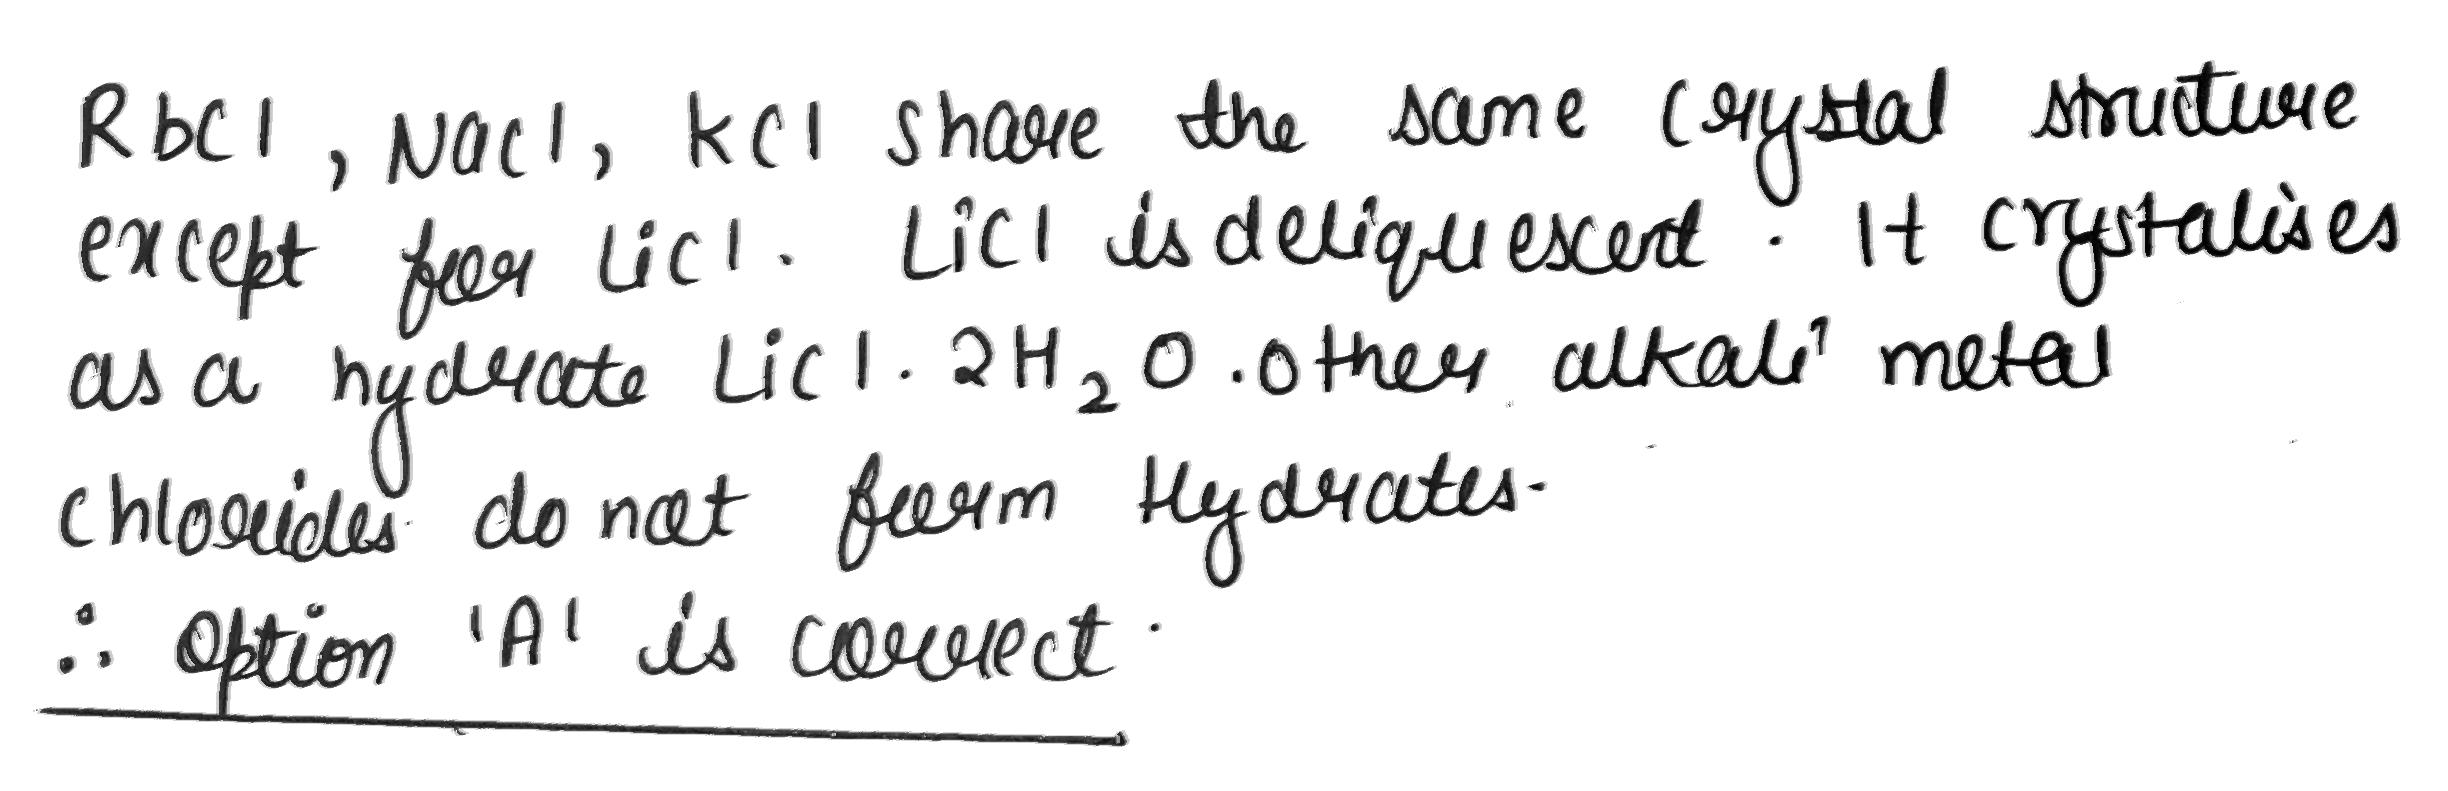 RbCl, NaCl, KCl share the same crystal structure
except for LiCl. LiCl is deliquescent. It crystalises
as a hydrate LiCl. 2H₂O. Other alkali metal
chlorides do not form Hydrates.
∴ Option 'A' is correct.